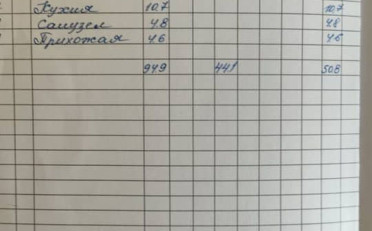 Кухня 10,7 10,7
Санузел 4,8 4,8
Прихожая 4,6 4,6
949 441 508